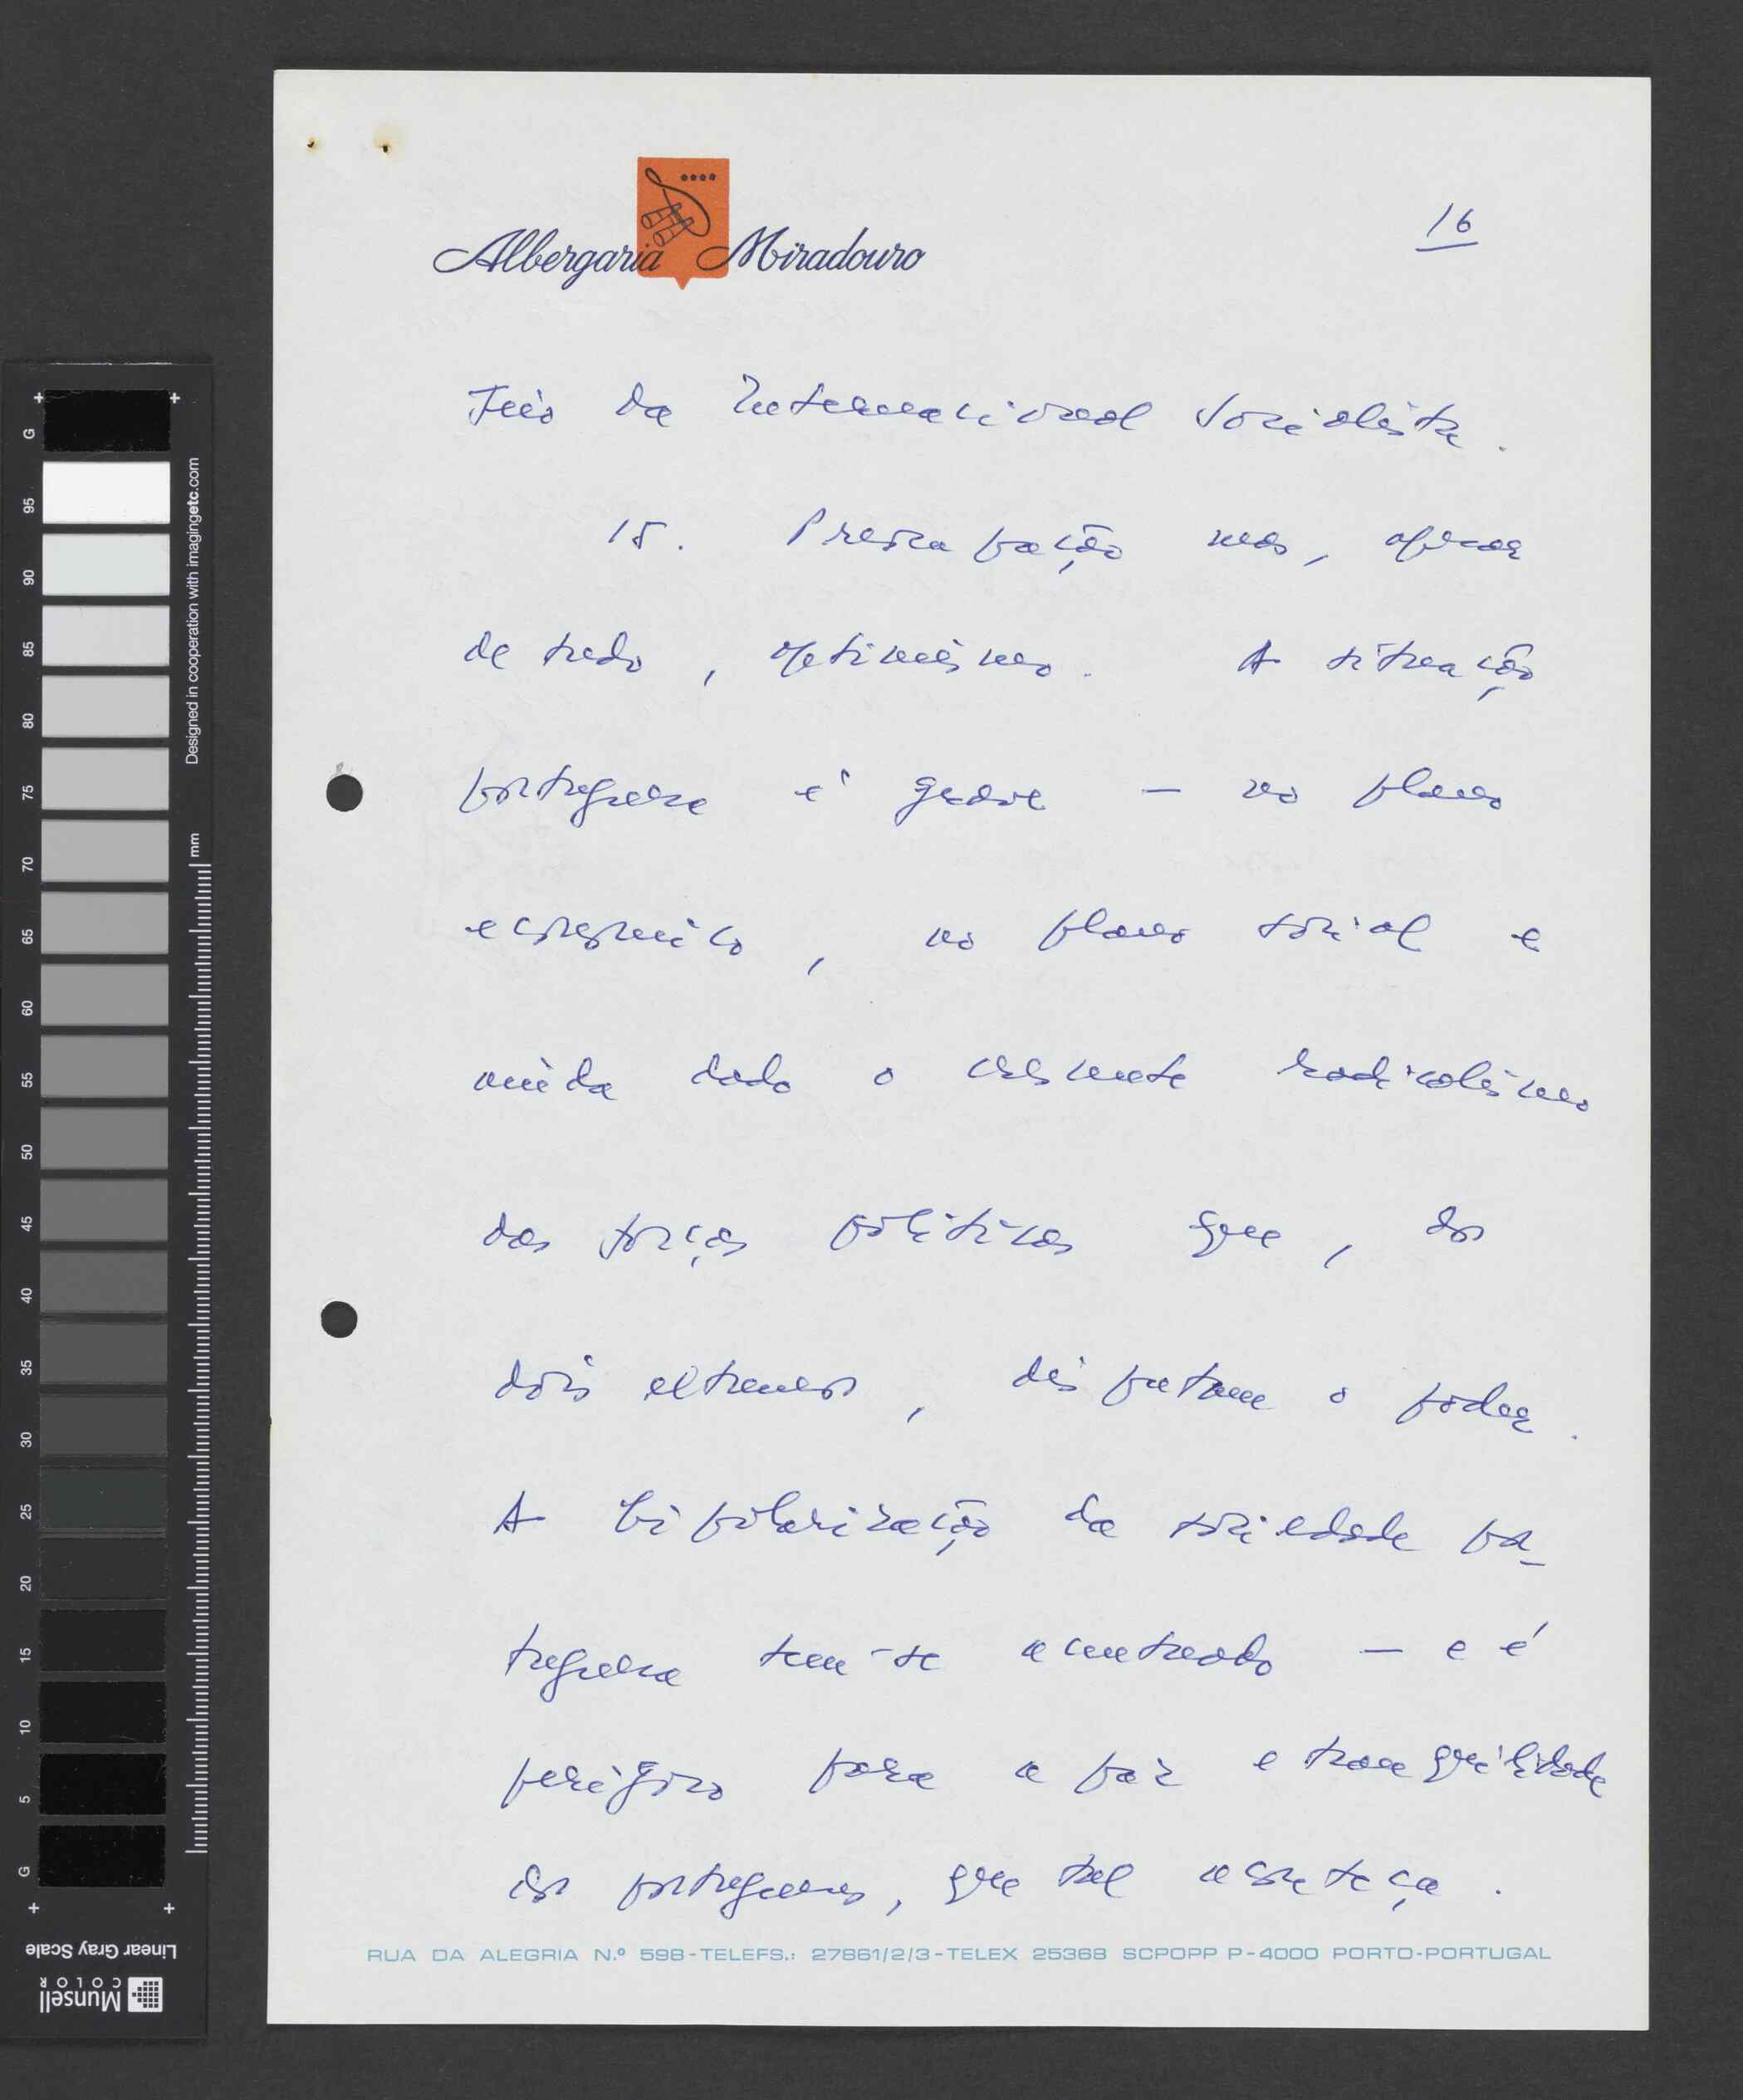 Albergaria Miradouro
16
da Internacional Socialista.
15. Preocupação mas, apesar
de tudo, optimismo. A situação
portuguesa é grave — no plano
económico, no plano social e
ainda dado o crescente radicalismo
das forças políticas que, dos
dois extremos, disputam o poder.
A bipolarização da sociedade por-
tuguesa tem-se acentuado — e é
perigoso para a paz e tranquilidade
dos portugueses, que tal aconteça.
RUA DA ALEGRIA N.º 598-TELEFS.: 27861/2/3-TELEX 25368 SCPOPP P-4000 PORTO-PORTUGAL
G
95
90
85
80
75
70
65
60
55
50
45
40
35
30
25
20
15
10
5
G
mm
Designed in cooperation with imagingetc.com
Linear Gray Scale
Munsell
COLOR